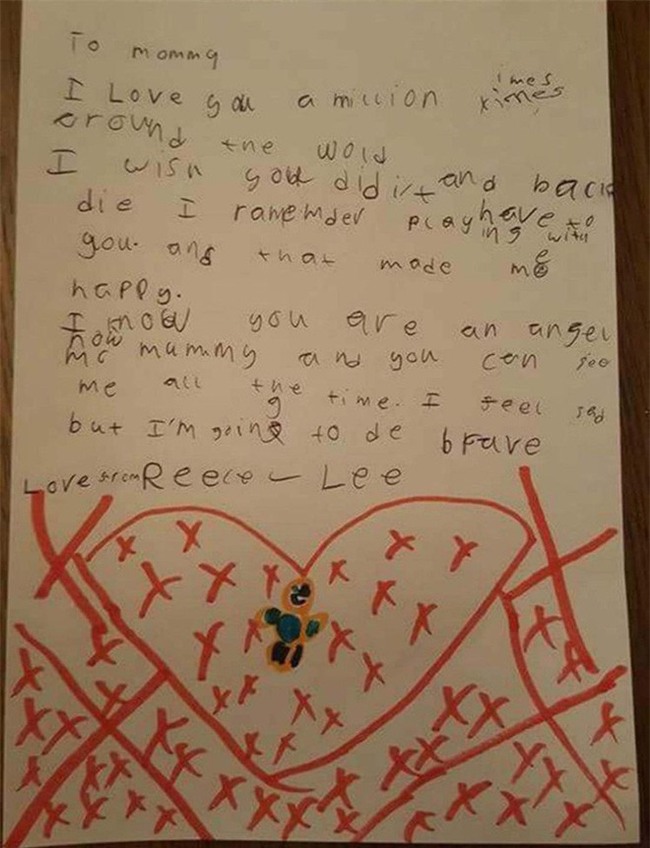 To mommy
I Love you a million ximes imes
around the wold
I wish you did i't and back
die I ramemder playing have to with
you. and that made me
happy.
I know you are an angel
now
my mummy and you can see
me all the time. I feel sad
but I'm going to de brave
Love from Reece - Lee